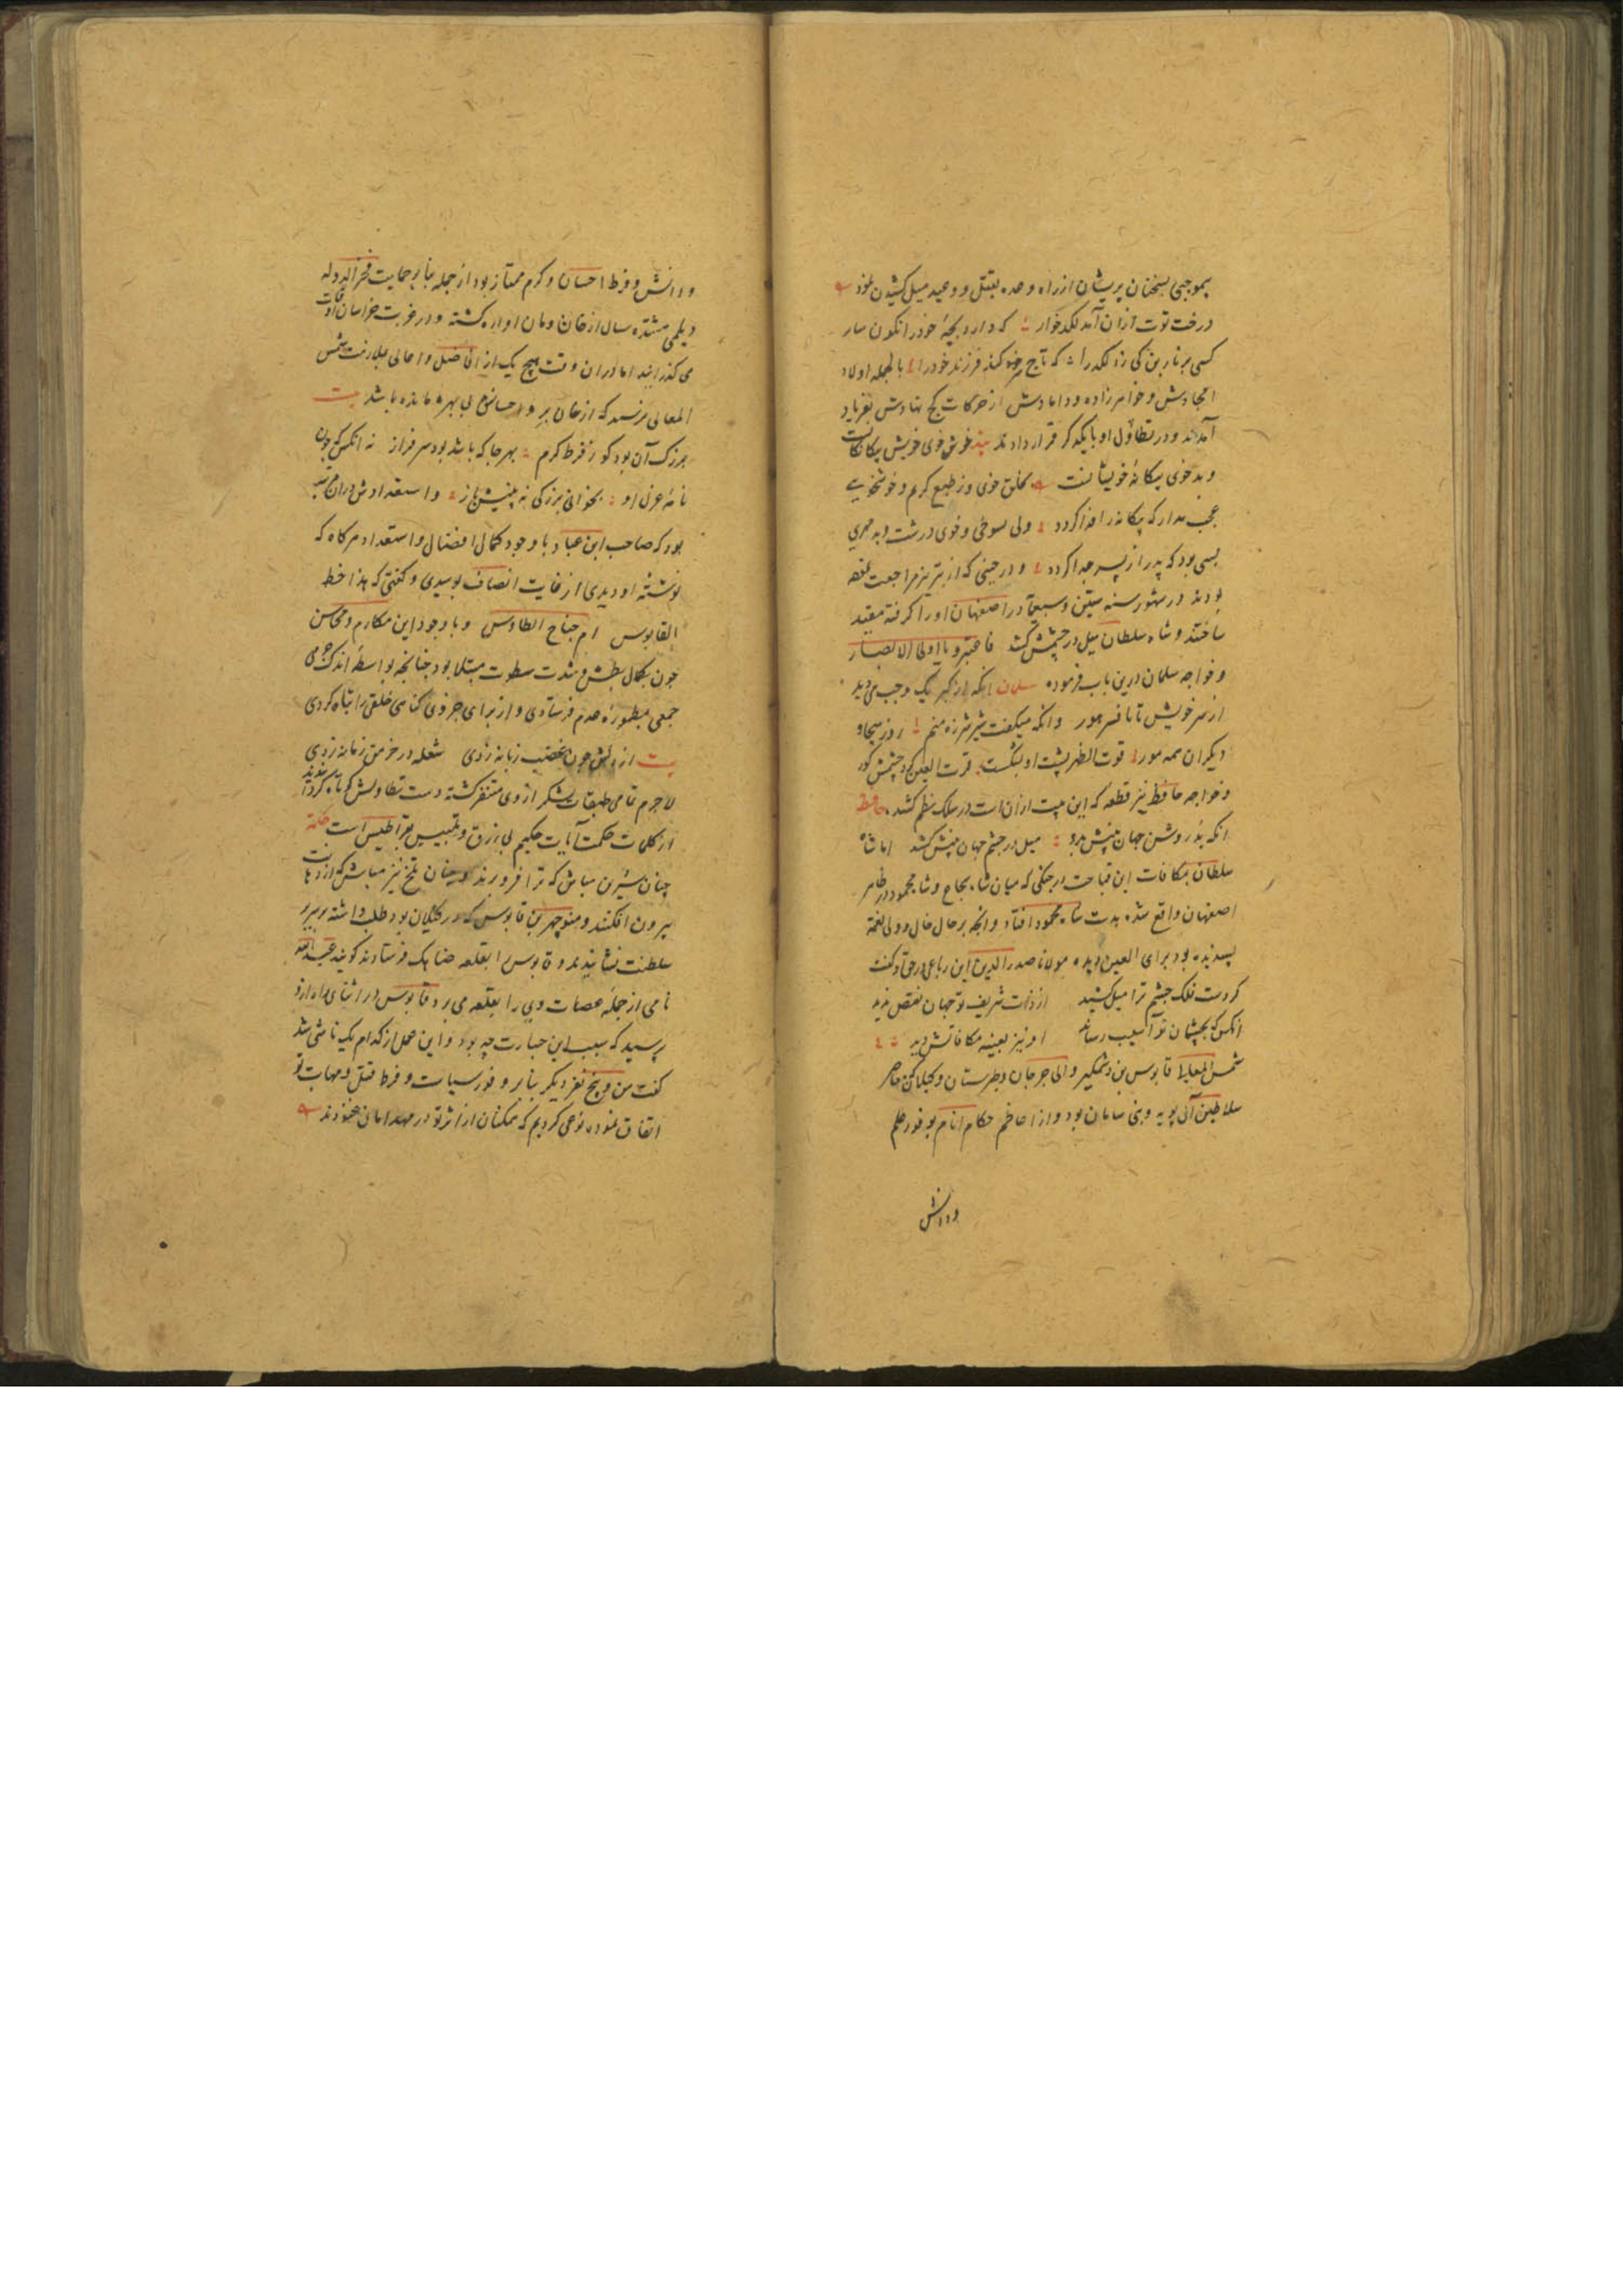 بموجبی سخنان پریشان از راه وعده بقتل و وعید میل کشیدن نمود
درخت توت ازان آمد لکدخوار که دارد بچهٔ خود را نکون سار
کسی بر ناربن کی زد لکد را که تاج سر کند فرزند خود را بالجمله اولاد
امجادش و خواهرزاده و دامادش از حرکات کج نهادش بفریاد
آمدند و در تطاول او با یکدکر قرار دادند خوش خوی خویش بیکانکانست
و بدخوی بیکانهٔ خویشانست بخلق خوش وز طبع کریم و خوشخویی
عجب مدار که بیکانه را فدا کردد ولی بسوی و خوی درشت و بدمهری
بسی بود که پدر از پسر جدا کردد و در حینی که از تبریز مراجعت نموده
بودند در شهور سنه ستین و سبعمآه در اصفهان او را کرفته مقید
ساختند و شاه سلطان میل در چشمش کشد فاعتبروا یا اولی الابصار
و خواجه سلمان درین باب فرموده سلمان انکه از کبر یک وجب می دید
از سر خویش تا بافسر هور وانکه میکفت شیر شرزه منم روز هیجا و
دیکران همه مور قوت الظهر پشت او بشکست قرت العین کرد چشمش کور
و خواجه حافظ نیز قطعه که این بیت ازان است در سلک نظم کشد حافظ
انکه بد روشن جهان بینش بدو میل در چشم جهان بینش کشد اما شاه
سلطان بمکافات این قباحت در جنکی که میان شاه شجاع و شاه محمود در ظاهر
اصفهان واقع شده بدست شاه محمود افتاد و انچه بر حال خال و ولی نعمة
پسندیده بود برای العین دیده مولانا صدرالدین این رباعی در حق او کفت
کردست فلک چشم ترا میل کشید از ذات شریف تو جهان نقص ندید
انکس که بچشمان تو آسیب رساند او نیز بعینه مکافاتش دید
شمس المعالی قابوس بن وشمکیر والی جرجان و طبرستان و کیلان که معاصر
سلاطین آل بویه و بنی سامان بود و از اعاظم حکام انام بوفور علم
ودانش
ودانش و فرط احسان و کرم ممتاز بود از جمله بنا بر حمایت فخرالدوله
دیلمی هشتده سال از خان و مان اواره کشته و در غربت خراسان اوقات
می کذرانید اما دران وقت هیچ یک از افاضل و اهالی بملازمت شمس
المعالی نرسید که از خان بر و احسانش بی بهره مانده باشد بیت
بزرک آن بود کو ز فرط کرم بهر جا که باشد بود سرفراز نه انکس که چون
نامهٔ عزل او بخوانی بزرکی نه بینیش باز و استعدادش دران مرتبه
بود که صاحب ابن عباد با وجود کمال افضال و استعداد هرکاه که
نوشتهٔ او دیدی از غایت انصاف بوسیدی و کفتی که هذا خط
القابوس ام جناح الطاوس و با وجود این مکارم و محاسن
چون بکمال بطش و شدت سطوت مبتلا بود چنانچه بواسطهٔ اندک جرمی
جمعی بمطمورهٔ عدم فرستادی و از برای جزوی کناهی خلقی را تباه کردی
بیت از دلش چون غضب زبانه زدی شعله در خرمن زمانه زدی
لاجرم تمامی طبقات لشکر از وی متنفر کشته دست تطاولش کوتاه کردانیدند
از کلمات حکمت آیات حکیم بی زرق و تلبیس بقراطیس است حکمة
چنان شیرین مباش که ترا فرو برند و چنان تلخ نیز مباش که از دهانت
بیرون افکنند و منوچهر بن قابوس که در کیلان بود طلب داشته بر سریر
سلطنت نشانیدند و قابوس را بقلعه جناشک فرستادند کویند عبدالله
نامی از جملهٔ عصات وی را بقلعه می برد قابوس در اثنای راه ازو
پرسید که سبب این جسارت چه بود و این عمل از کدام یک ناشی شد
کفت من و پنج نفر دیکر بنا بر وفور سیاست و فرط قتل و مهابت تو
اتفاق نموده نوعی کردیم که همکنان از شر تو در مهد امان غنودند